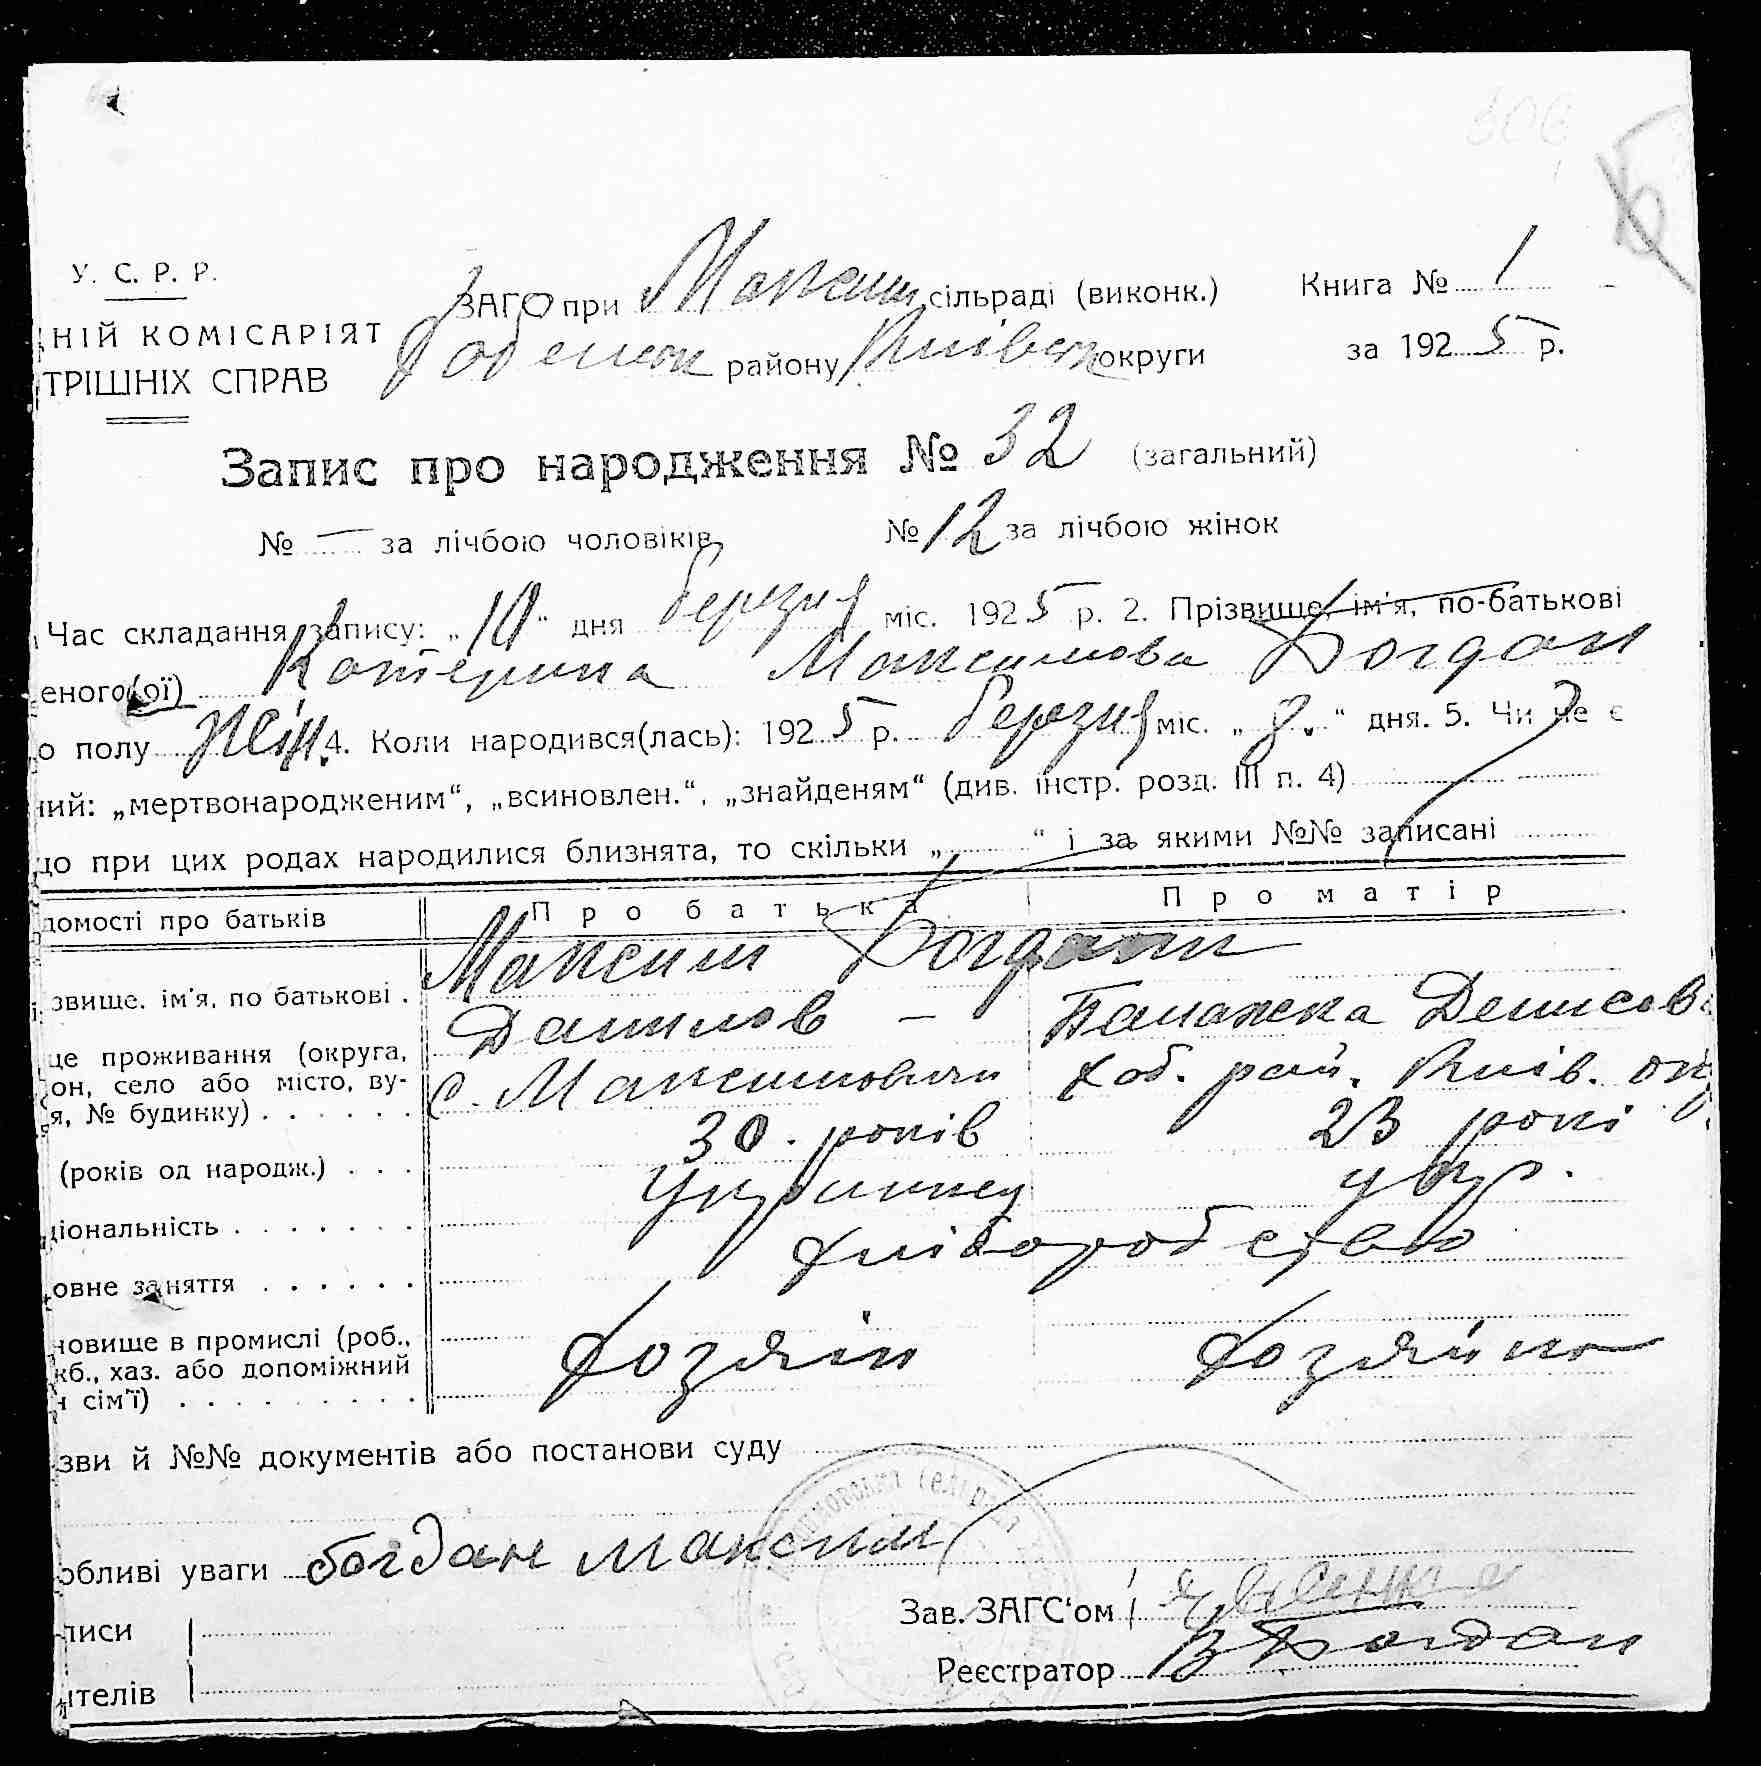 У. С. Р. Р.
ЗАГС при Максим. сільраді (виконк.) Книга № 1
НІЙ КОМІСАРІЯТ
Хобенск району Київск округи за 1925 р.
ТРІШНІХ СПРАВ
Запис про народження № 32 (загальний)
№ — за лічбою чоловіків № 12 за лічбою жінок
Час складання запису: „10“ дня березня міс. 1925 р. 2. Прізвище, ім'я, по-батькові
еного(ої) Катерина Максимова Богдан
о полу жін. 4. Коли народився(лась): 1925 р. березня міс. „8.“ дня. 5. Чи не є
ний: „мертвонародженим“, „всиновлен.“, „знайденям“ (див. інстр. розд. III п. 4)
що при цих родах народилися близнята, то скільки „ “ і за якими №№ записані
домості про батьків Про батька Про матір
Максим Богдани
звище. ім'я, по батькові . Данилов — Палажка Денисов
це проживання (округа,
он, село або місто, ву- с. Максимовичи Хоб. рай. Київ. окр
я, № будинку) . . . . . .
(років од народж.) . . . 30. років 23 рокі
ціональність . . . . . . . Украинец укр.
овне заняття . . . . . . Хліборобство
новище в промислі (роб.,
кб., хаз. або допоміжний Хозяін Хозяйка
н сім'ї) . . . . . . . . .
зви й №№ документів або постанови суду
обливі уваги богдан максим
Зав. ЗАГС'ом
писи
Реєстратор В Богдан
ителів